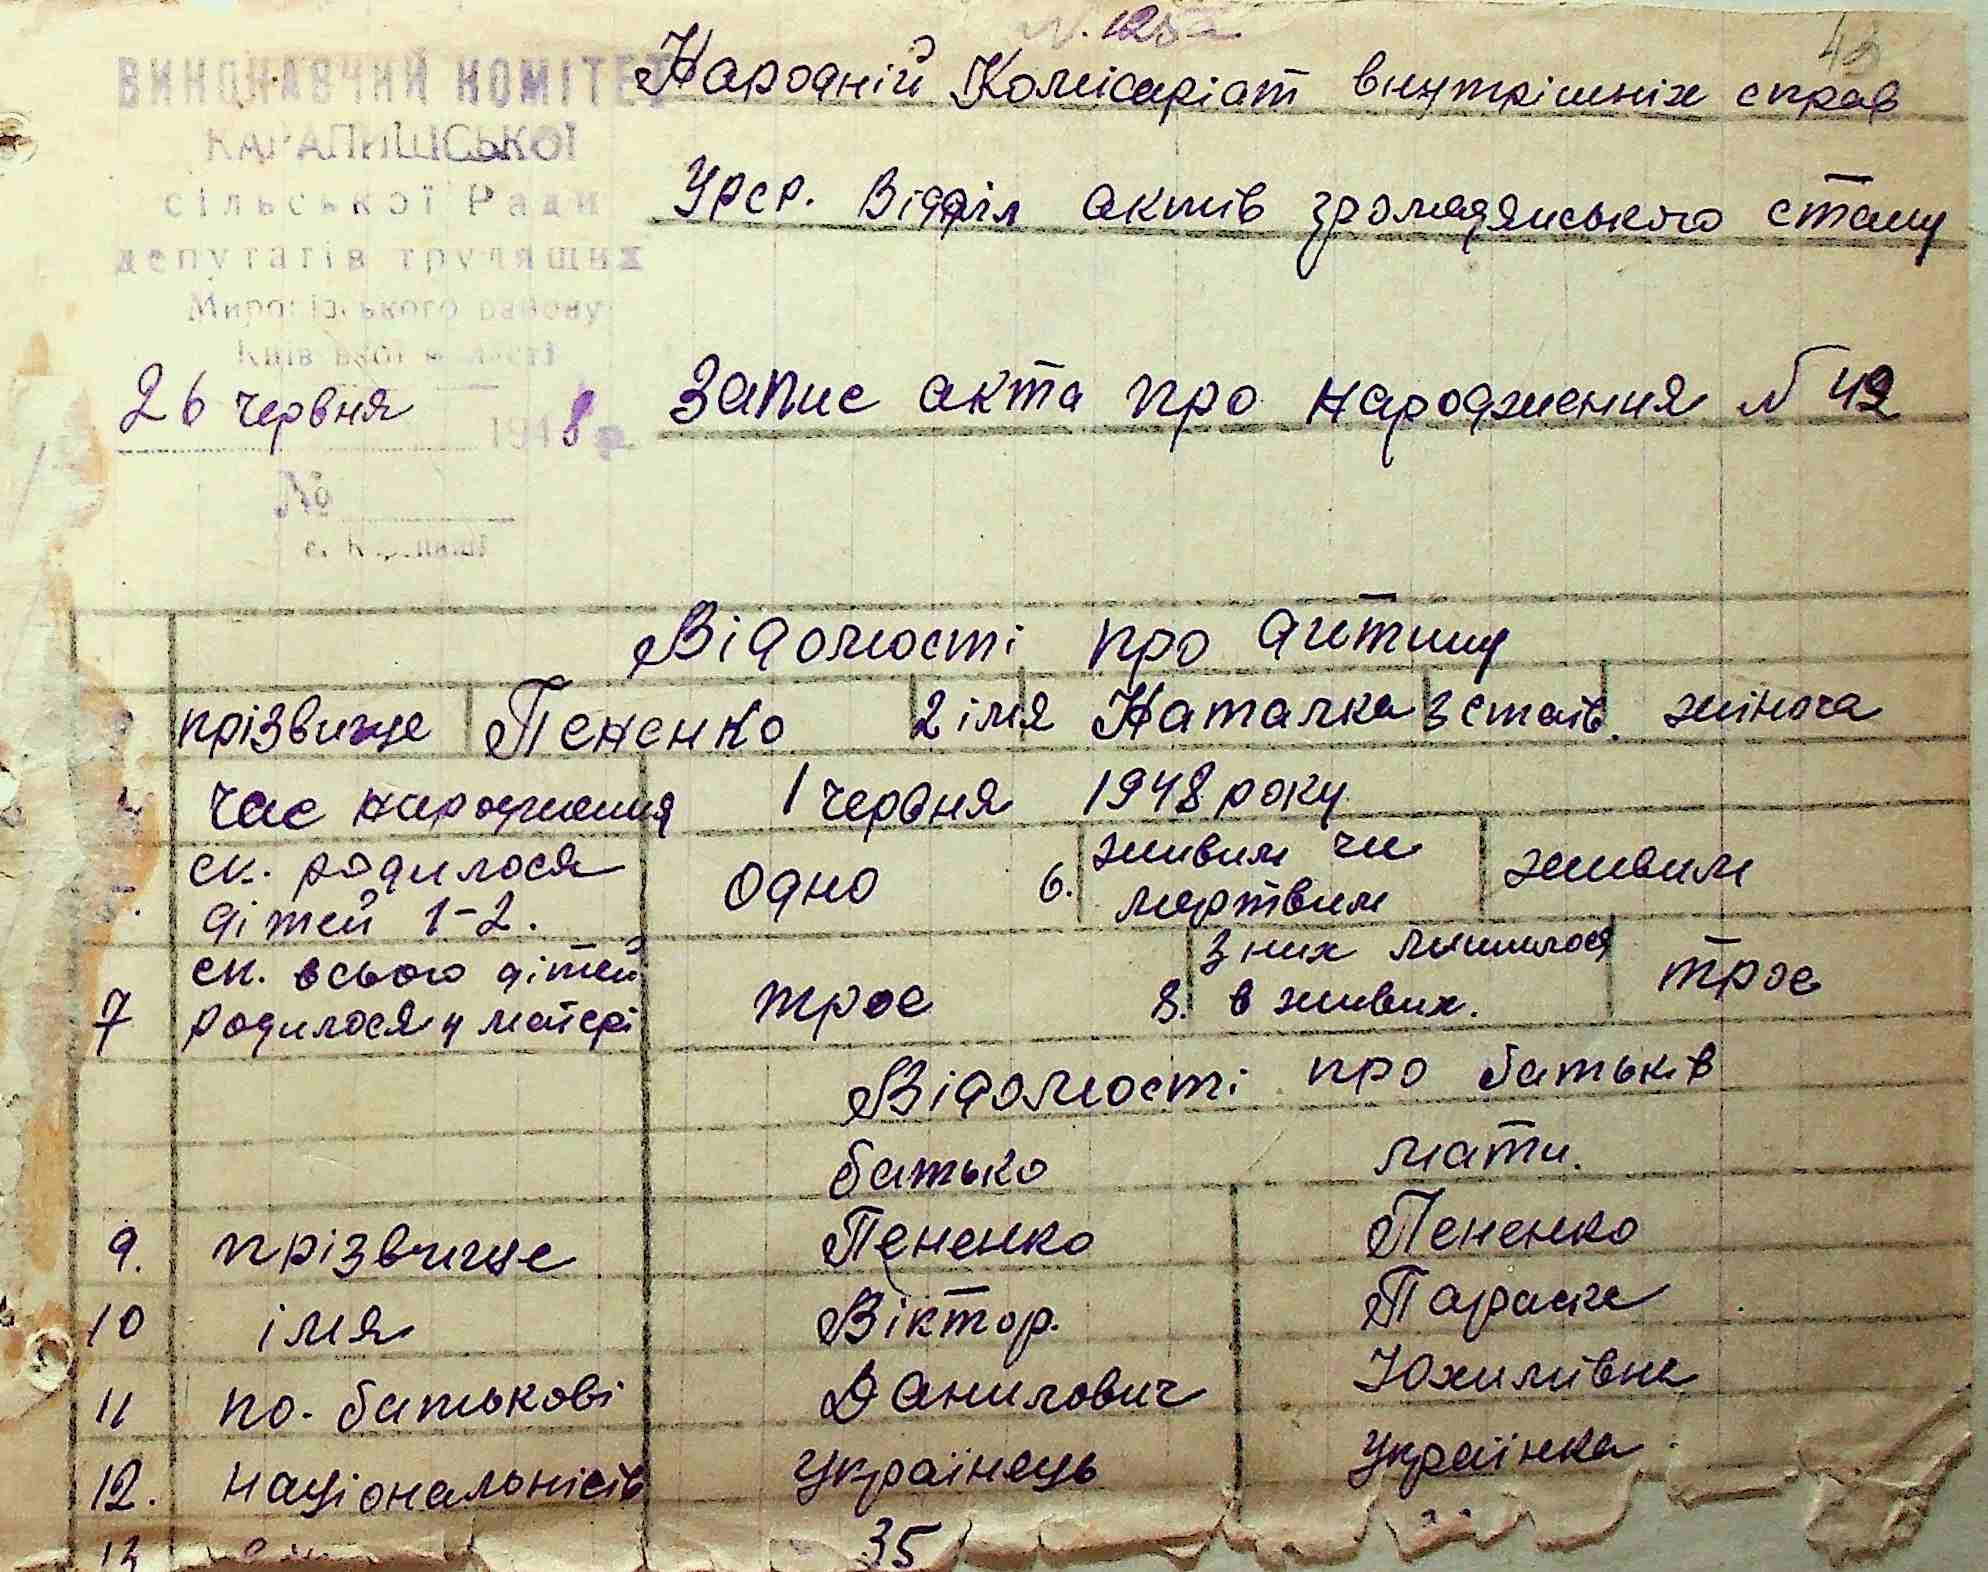 N. 125а
43
ВИКОНАВЧИЙ КОМІТЕТ
КАРАПИШСЬКОЇ
сільської Ради
депутатів трудящих
Миронівського району
Київської області
26 червня 1948 р
№
с. Карапиші
Народній Комісаріат внутрішніх справ
Урср. Відділ актів громадянського стану
Запис акта про народження № 42
Відомості про дитину
прізвище Пененко 2 імя Наталка 3 стать. жіноча
час народження 1 червня 1948 року
ск. родилося дітей 1-2. одно 6. живим чи мертвим живим
7 ск. всього дітей родилося у матері троє 8. з них лишилося в живих. троє
Відомості про батьків
батько мати.
9. прізвище Пененко Пененко
10 імя Віктор. Параска
11 по-батькові Данилович Юхимівна
12. національність українець українка
13 35